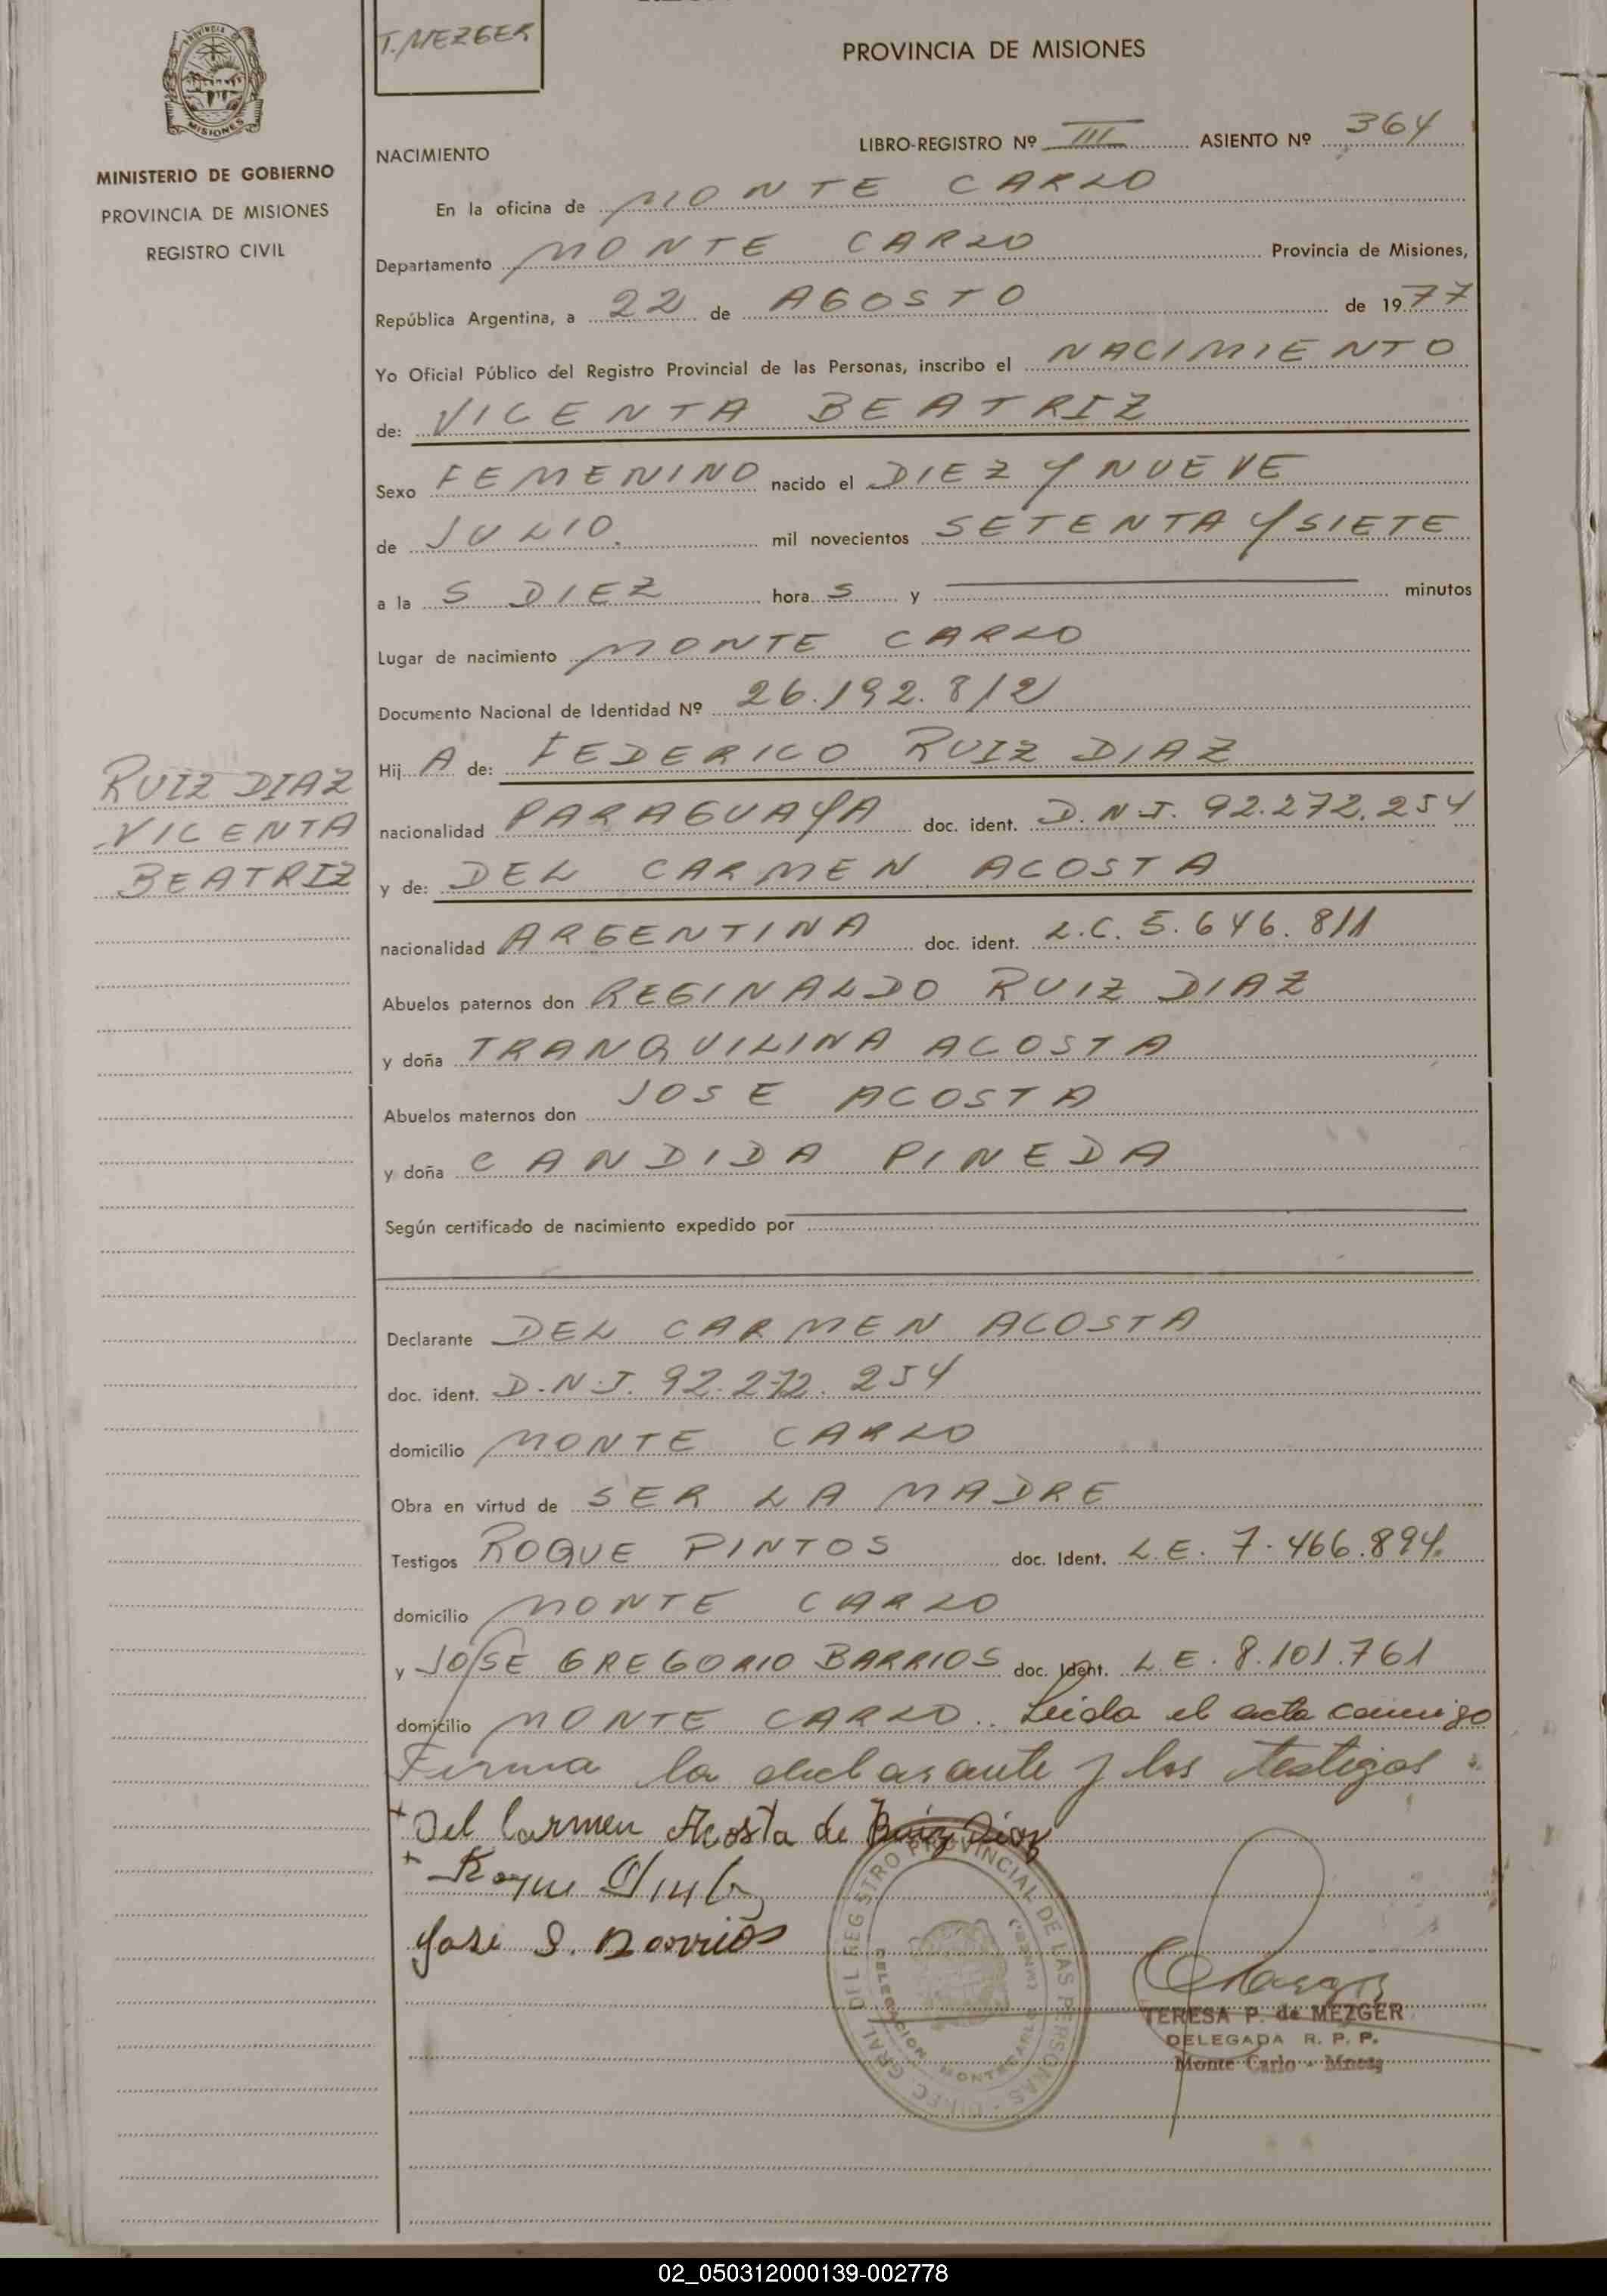 T. MEZGER
PROVINCIA DE MISIONES
PROVINCIA DE
MISIONES
MINISTERIO DE GOBIERNO
PROVINCIA DE MISIONES
REGISTRO CIVIL
LIBRO-REGISTRO Nº III ASIENTO Nº 364
NACIMIENTO
En la oficina de MONTE CARLO
Departamento MONTE CARLO Provincia de Misiones,
República Argentina, a 22 de AGOSTO de 1977
Yo Oficial Público del Registro Provincial de las Personas, inscribo el NACIMIENTO
de: VICENTA BEATRIZ
Sexo FEMENINO nacido el DIEZ Y NUEVE
de JULIO. mil novecientos SETENTA Y SIETE
a la S DIEZ hora S y minutos
Lugar de nacimiento MONTE CARLO
Documento Nacional de Identidad Nº 26.192.812
RUIZ DIAZ
VICENTA
BEATRIZ
Hij A de: FEDERICO RUIZ DIAZ
nacionalidad PARAGUAYA doc. ident. D.N.I. 92.272.254
y de: DEL CARMEN ACOSTA
nacionalidad ARGENTINA doc. ident. L.C. 5.646.811
Abuelos paternos don REGINALDO RUIZ DIAZ
y doña TRANQUILINA ACOSTA
Abuelos maternos don JOSE ACOSTA
y doña CANDIDA PINEDA
Según certificado de nacimiento expedido por
Declarante DEL CARMEN ACOSTA
doc. ident. D.N.I. 92.272.254
domicilio MONTE CARLO
Obra en virtud de SER LA MADRE
Testigos ROQUE PINTOS doc. Ident. L.E. 7.466.894.
domicilio MONTE CARLO
y JOSE GREGORIO BARRIOS doc. Ident. L.E. 8.101.761
domicilio MONTE CARLO. Leida el acta conmigo
Firma la declarante y los testigos.
Del Carmen Acosta de Ruiz Diaz
Roque Pinto
José G. Barrios
DIREC. GRAL. DEL REGISTRO PROVINCIAL DE LAS PERSONAS
DELEGACION MONTECARLO
TERESA P. de MEZGER
DELEGADA R. P. P.
Monte Carlo - Mnes
02_050312000139-002778